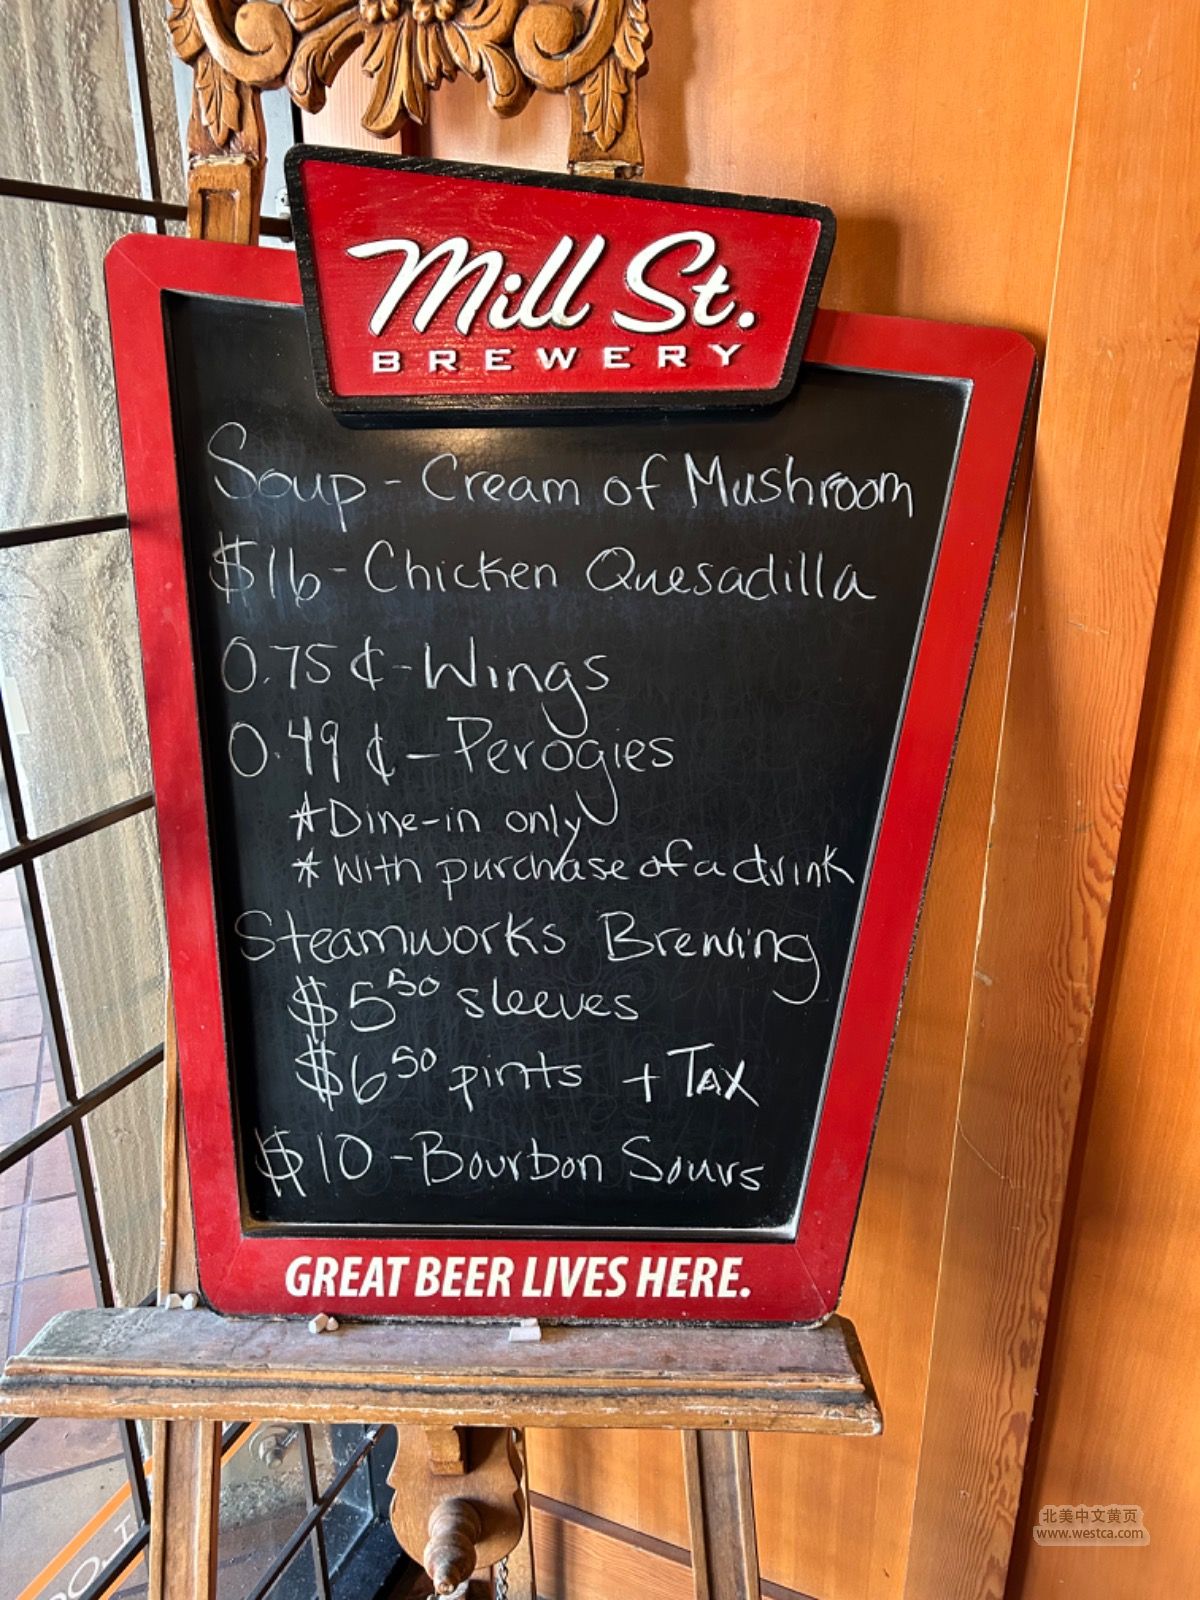 Mill St.
BREWERY
Soup - Cream of Mushroom
$16 - Chicken Quesadilla
0.75 ¢ - Wings
0.49 ¢ - Perogies
* Dine-in only
* With purchase of a drink
Steamworks Brewing
$5 50 sleeves
$6 50 pints + TAX
$10 - Bourbon Sours
GREAT BEER LIVES HERE.
北美中文黄页
www.westca.com